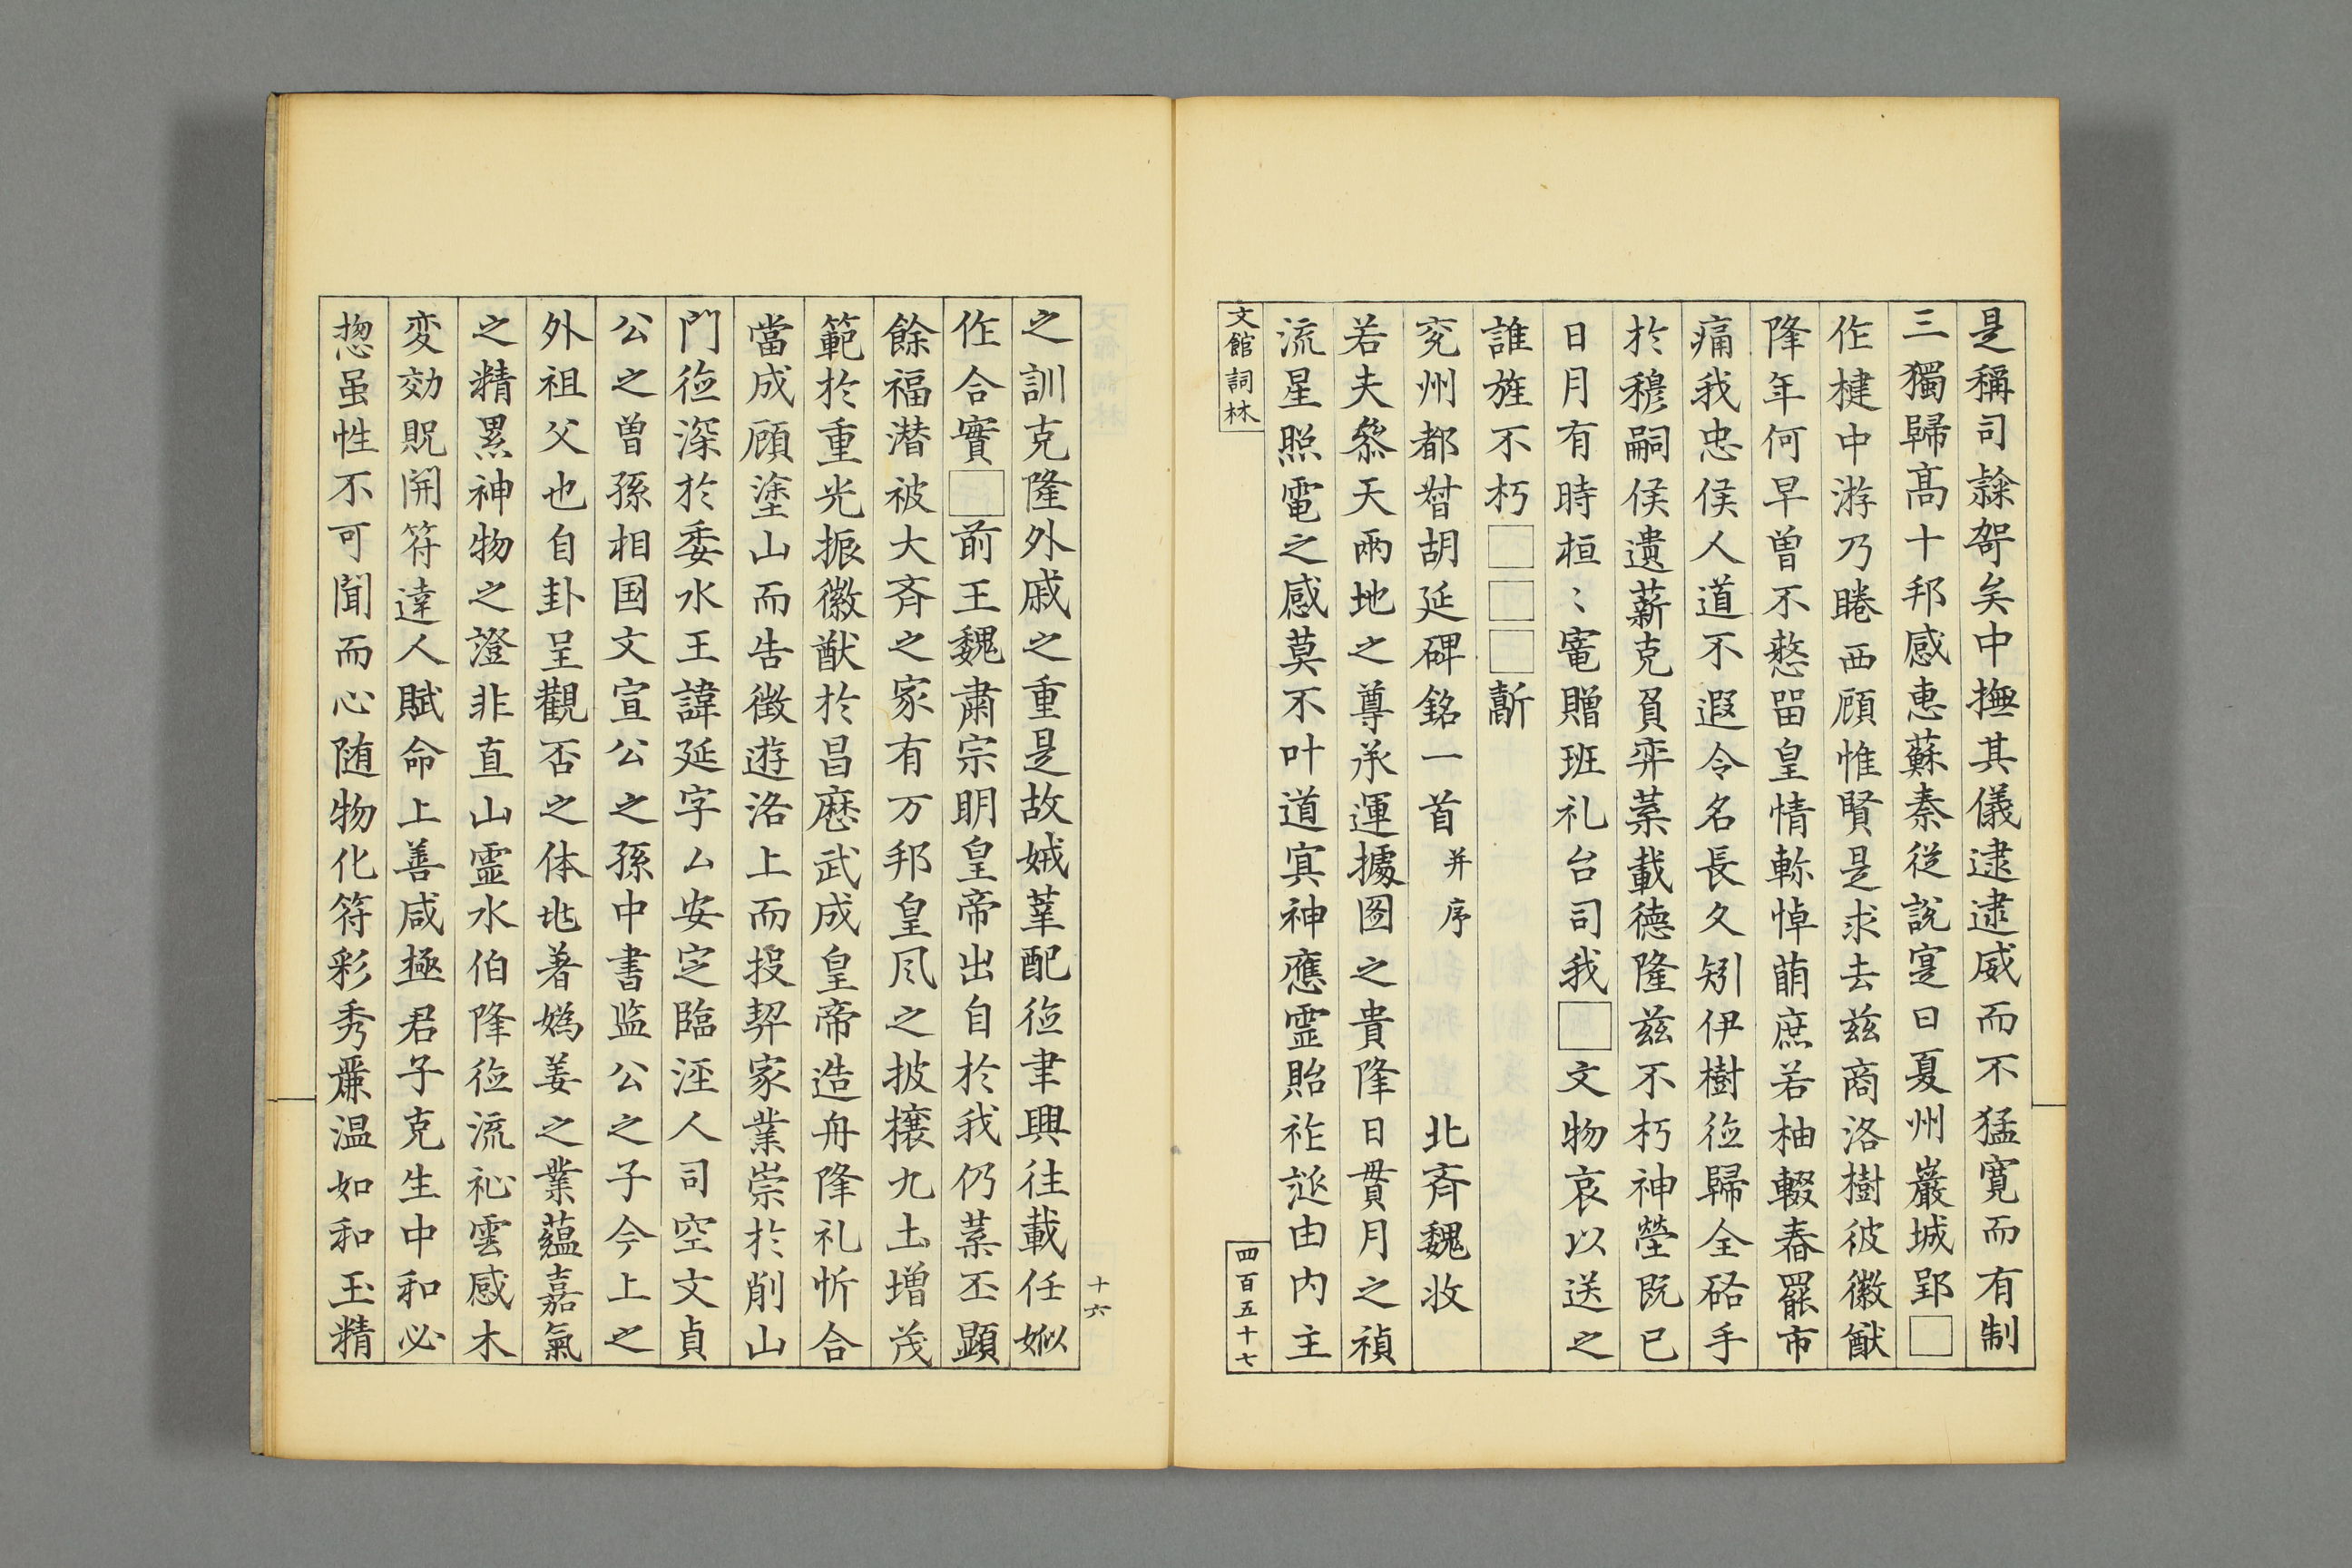 是稱司隸哿矣中撫其儀逮逮威而不猛寬而有制
三獨歸高十邦感惠蘇秦從說寔曰夏州巖城郢□
作楗中游乃睠西顧惟賢是求去茲商洛樹彼徽猷
降年何早曾不憖留皇情軫悼萌庶若抽輟舂罷市
痛我忠侯人道不遐令名長久矧伊樹徳歸全硌手
於穆嗣侯遺薪克負弈葉載德隆茲不朽神塋既已
日月有時桓〻窀贈班礼台司我□文物哀以送之
誰旌不朽□□□斸
兖州都督胡延碑銘一首并序 北齊魏收
若夫叅天兩地之尊承運據圖之貴降日貫月之禎
流星照電之感莫不叶道冥神應霊貽祚遂由内主
文館詞林
四百五十七
十六
之訓克隆外戚之重是故娀莘配徳聿興往載任姒
作合實□前王魏肅宗明皇帝出自於我仍葉丕顯
餘福潛被大齊之家有万邦皇風之披攘九土増茂
範於重光振徽猷於昌歷武成皇帝造舟降礼忻合
當成顧塗山而告徵遊洛上而投契家業崇於削山
門徳深於委水王諱延字厶安定臨涇人司空文貞
公之曽孫相国文宣公之孫中書监公之子今上之
外祖父也自卦呈觀否之体地著嬀姜之業蘊嘉氣
之精累神物之證非直山霊水伯降徳流祕雲感木
変効貺開符達人賦命上善咸極君子克生中和必
惣虽性不可聞而心随物化符彩秀麗温如和玉精